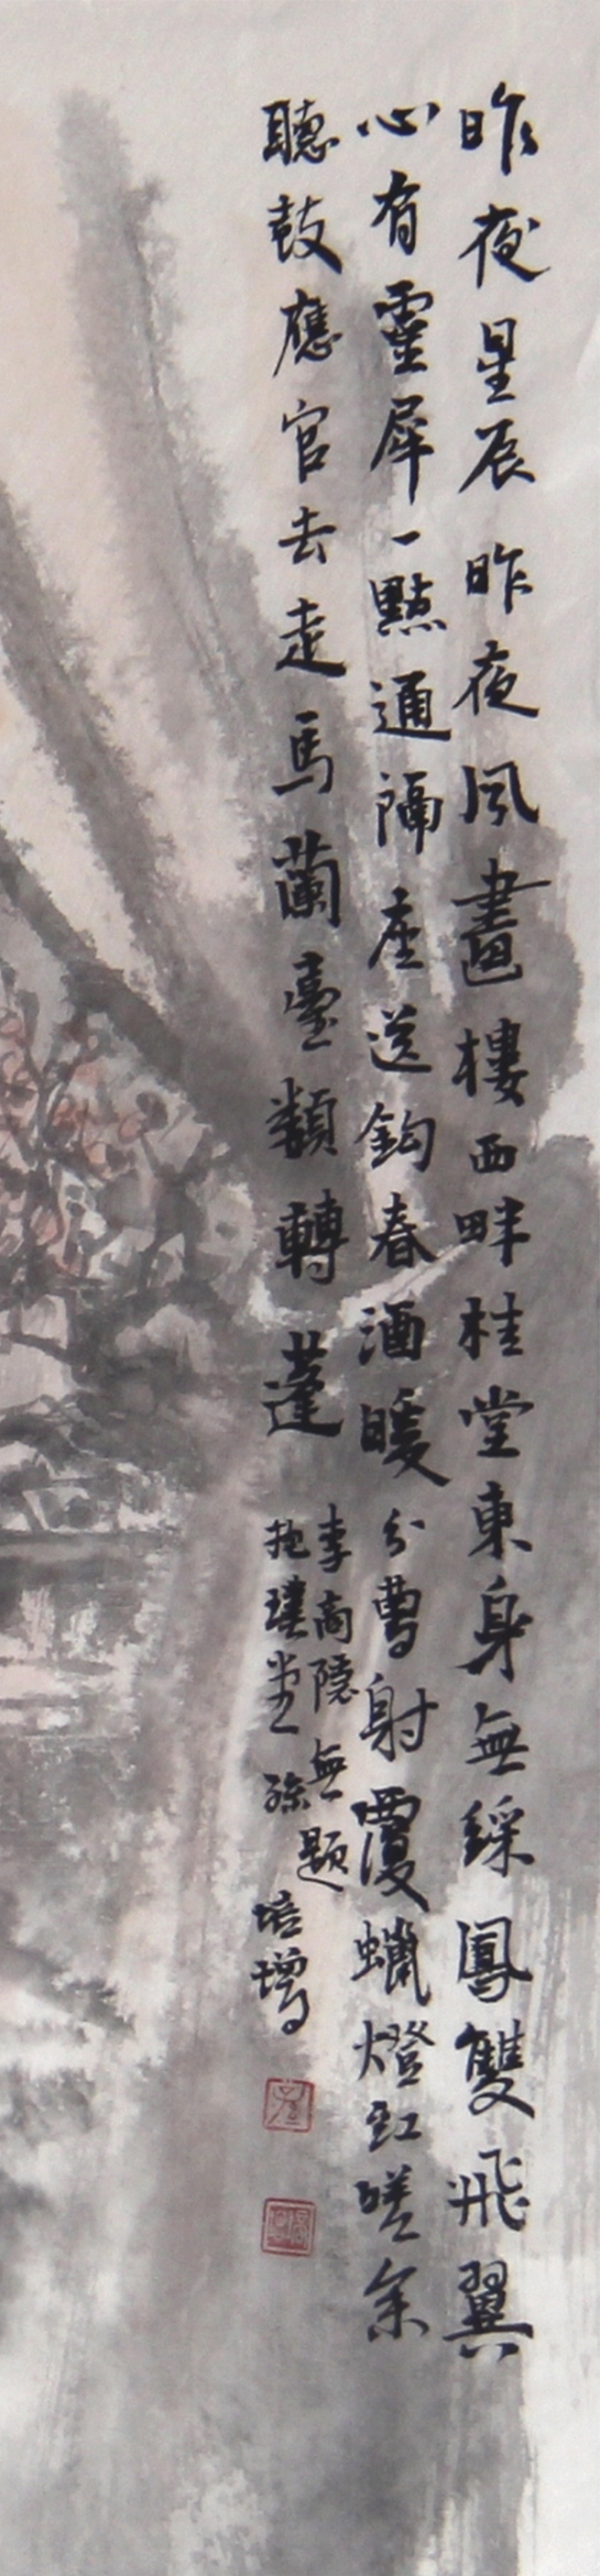 昨夜星辰昨夜風畫樓西畔桂堂東身無綵鳳雙飛翼
心有靈犀一點通隔座送鈎春酒暖分曹射覆蠟燈紅嗟余
聽鼓應官去走馬蘭臺類轉蓬
李商隱無題
抱璞堂孫培增